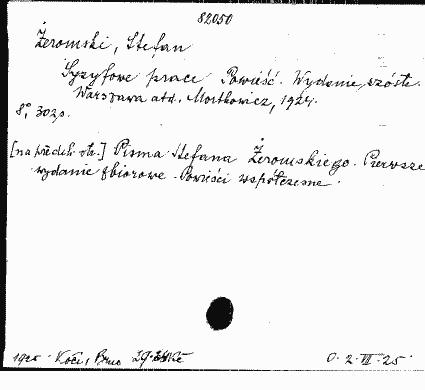 82050
Żeromski, Stefan
Syzyfowe prace Powieść. Wydanie szóste.
Warszawa atd. Mortkowicz, 1924.
8°, 302 s.
[na předch. str.] Pisma Stefana Żeromskiego. Pierwsze
wydanie zbiorowe. Powieści współczesne.
1925 Kočí, Brno Kč O. 2. VII. 25